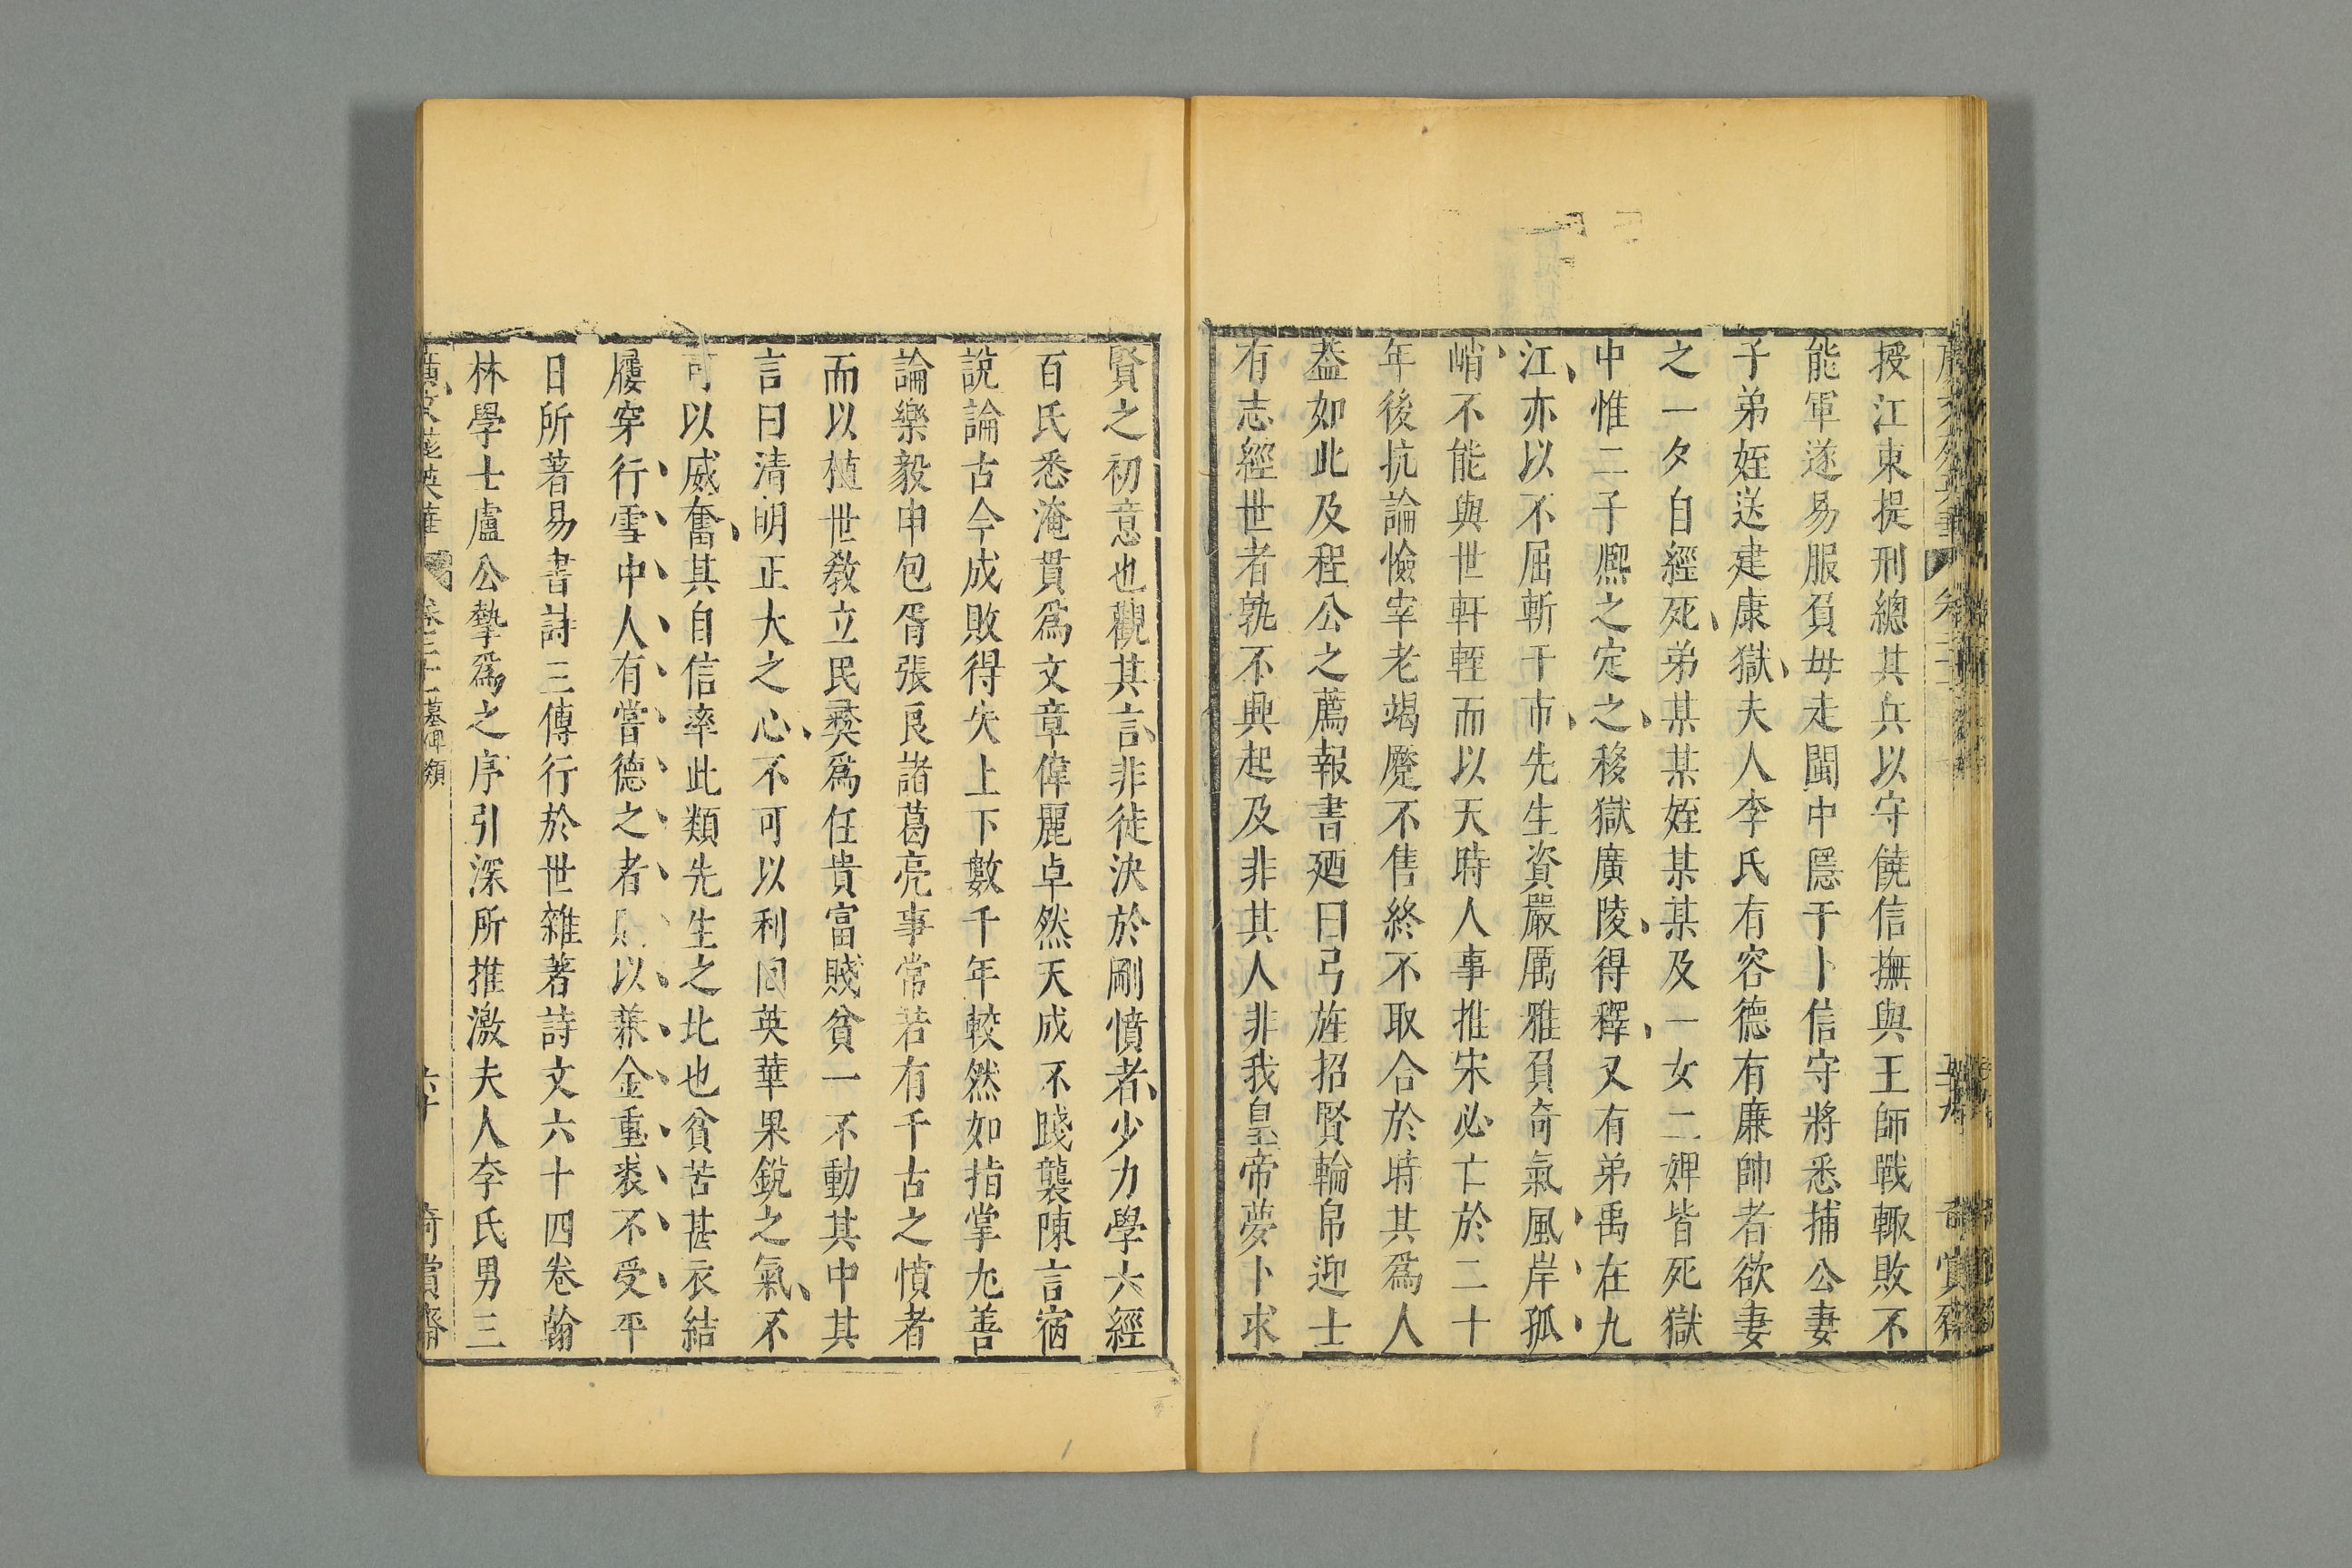 授江東提刑總其兵以守饒信撫與王師戰輙敗不
能軍遂易服負毋走閩中隱于卜信守將悉捕公妻
子弟姪送建康獄夫人李氏有容德有廉帥者欲妻
之一夕自經死弟某某姪某某及一女二婢皆死獄
中惟二子熈之定之移獄廣陵得釋又有弟禹在九
江亦以不屈斬于市先生資嚴厲雅負奇氣風岸孤
峭不能與世軒輊而以天時人事推宋必亡於二十
年後抗論憸宰老竭蹷不售終不取合於時其爲人
葢如此及程公之薦報書廼曰弓旌招賢輪帛迎士
有志經世者孰不興起及非其人非我皇帝夢卜求
賢之初意也觀其言非徒決於剛憤者少力學六經
百氏悉淹貫爲文章偉麗卓然天成不踐襲陳言宿
說論古今成敗得失上下數千年較然如指掌尤善
論樂毅申包胥張良諸葛亮事常若有千古之憤者
而以植世敎立民彞爲任貴富賤貧一不動其中其
言曰清明正大之心不可以利回英華果銳之氣不
可以威奮其自信率此類先生之北也貧苦甚衣結
屨穿行雪中人有嘗德之者以兼金重裘不受平
日所著易書詩三傳行於世雜著詩文六十四卷翰
林學士盧公摯爲之序引深所推激夫人李氏男三
廣文苑英華 卷三十一 墓碑類 六十 奇賞齋